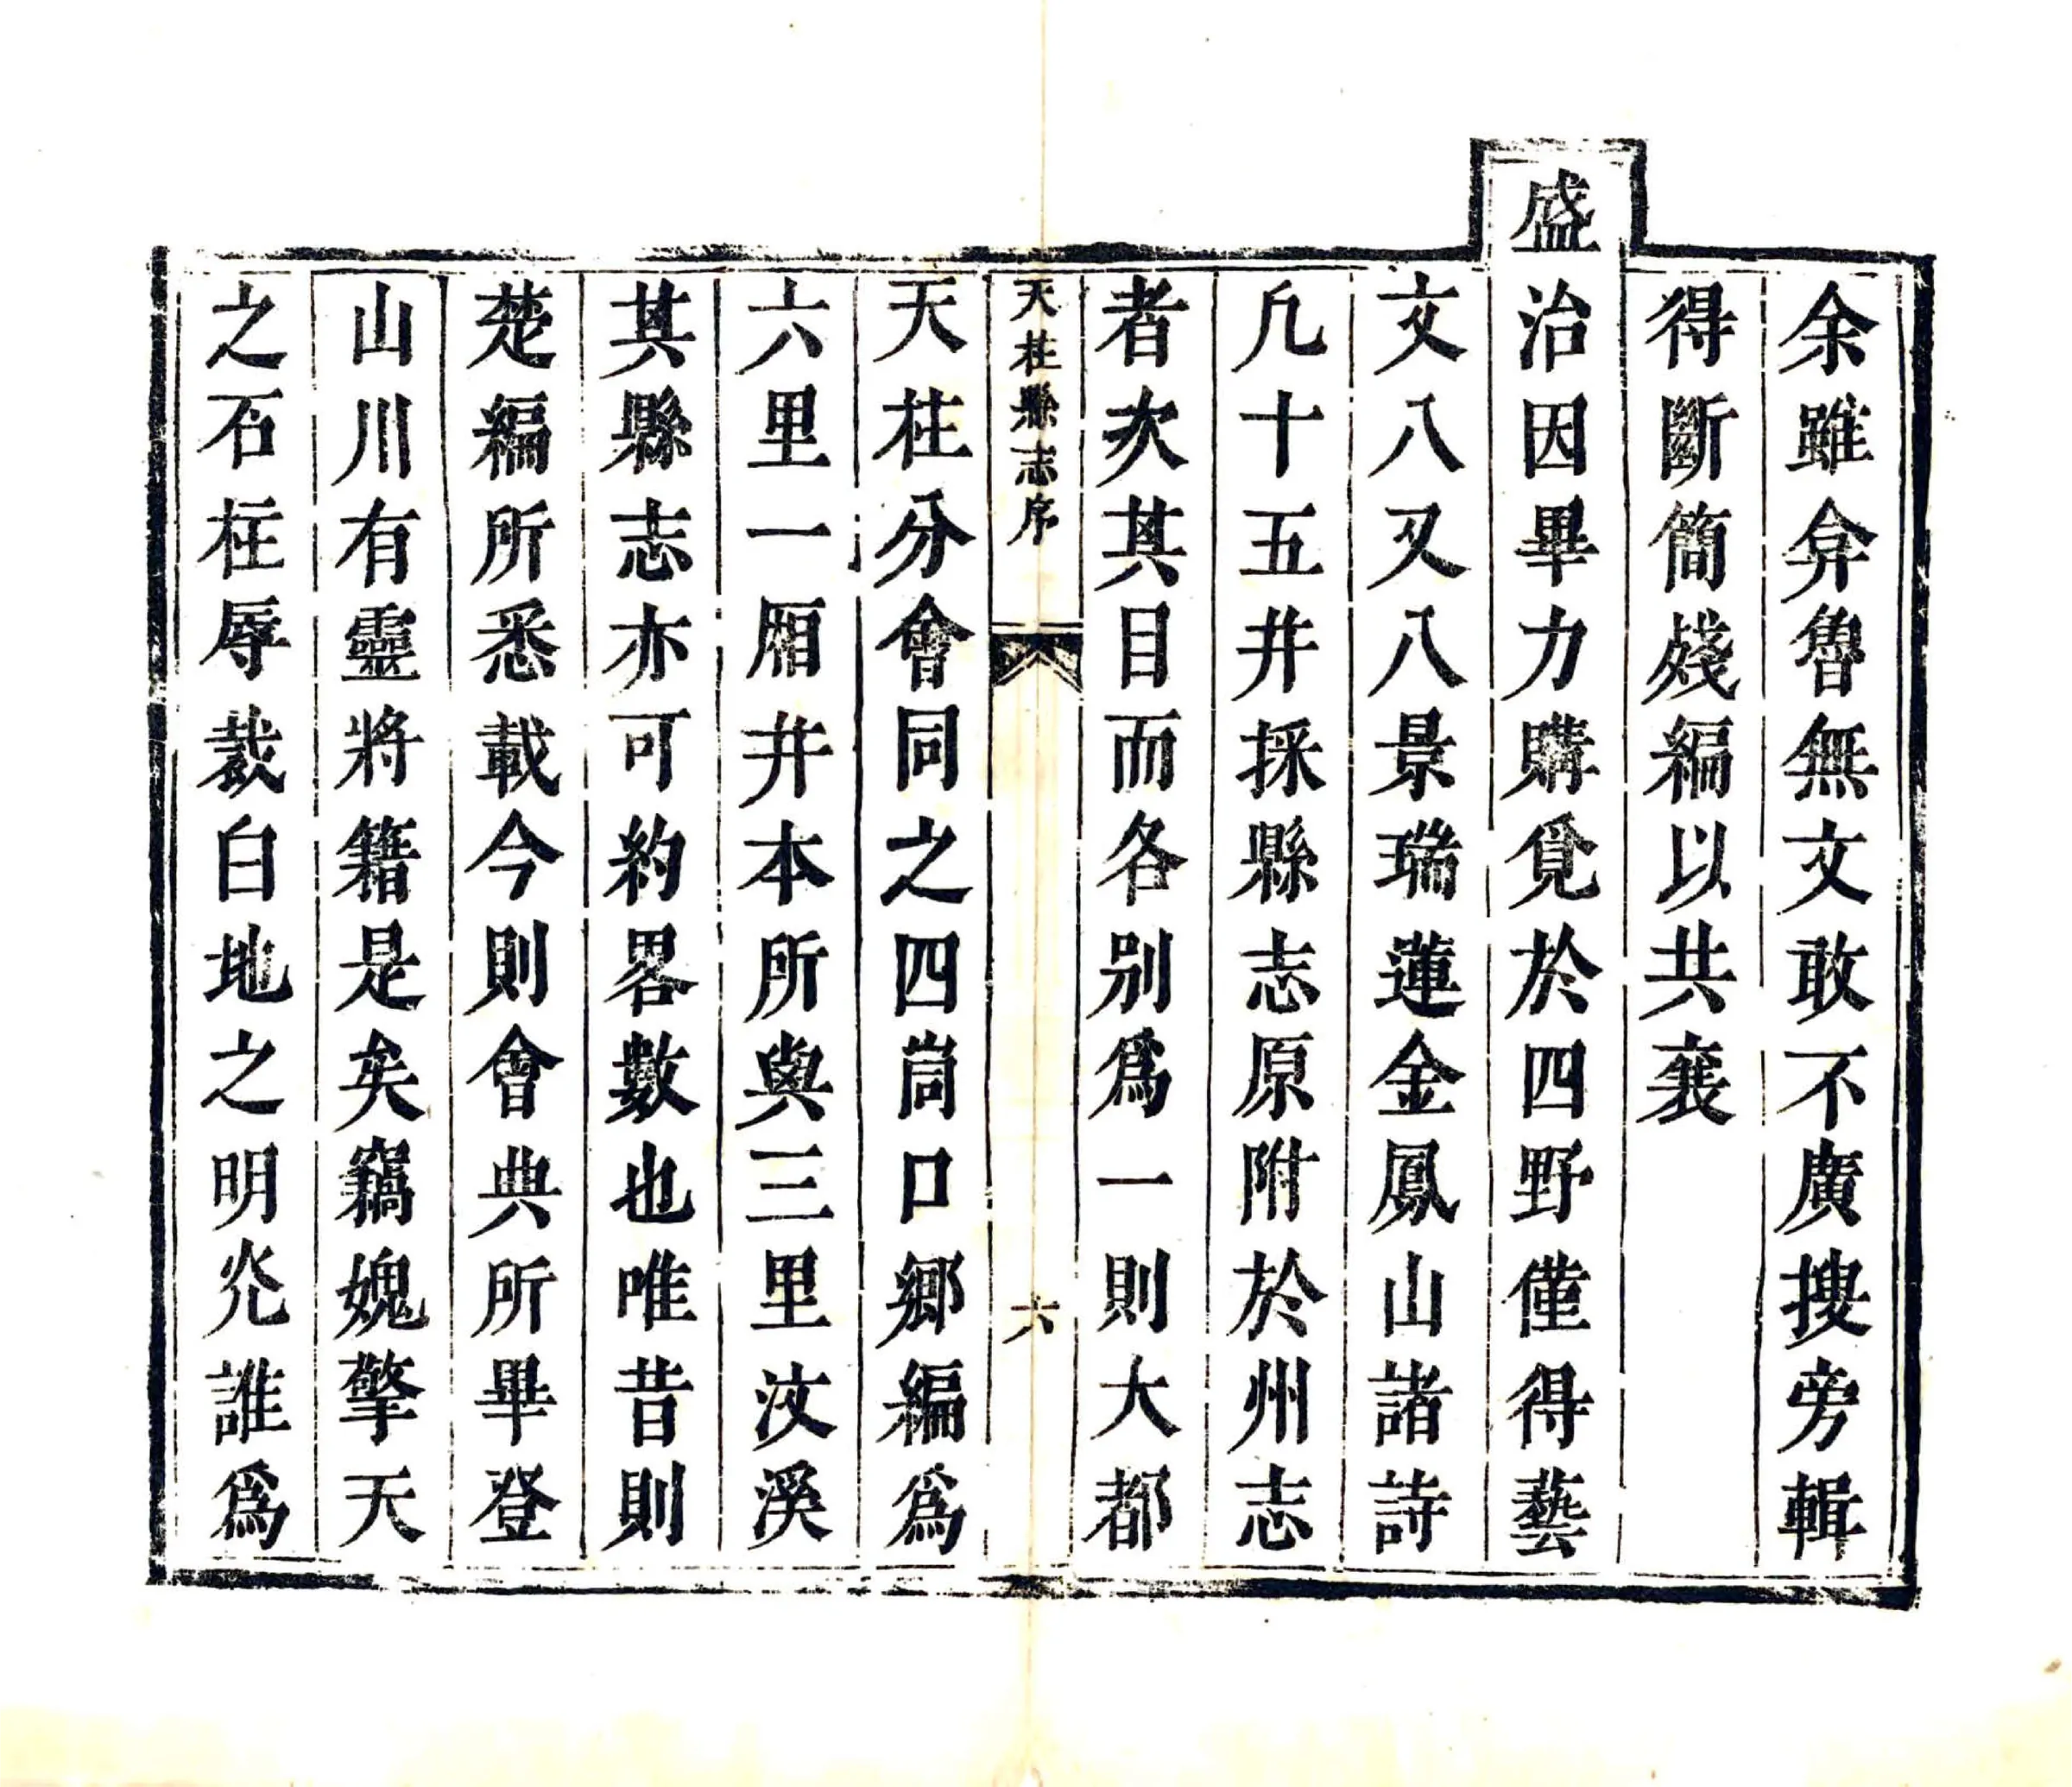 余雖弇魯無文敢不廣搜旁輯
得斷簡殘編以共襄
盛治因畢力購覓於四野僅得藝
文八又八景瑞蓮金鳳山諸詩
凡十五幷採縣志原附於州志
者次其目而各别爲一則大都
天柱縣志序
六
天柱分會同之四峝口鄉編爲
六里一厢幷本所與三里汶溪
其縣志亦可約畧數也唯昔則
楚編所悉載今則會典所畢登
山川有靈將籍是矣竊媿擎天
之石柱辱裁白地之明灮誰爲